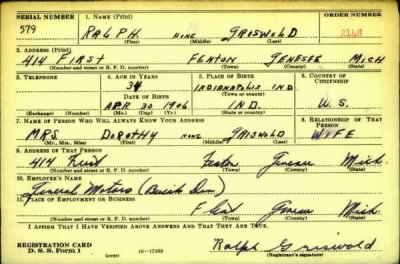 SERIAL NUMBER 1. NAME (Print) ORDER NUMBER
579 RALPH NONE GRISWOLD
(First) (Middle) (Last)
2. ADDRESS (Print)
414 FIRST FENTON GENESEE MICH
(Number and street or R. F. D. number) (Town) (County) (State)
3. TELEPHONE 4. AGE IN YEARS 5. PLACE OF BIRTH 6. COUNTRY OF CITIZENSHIP
34 INDIANAPOLIS, IND.
DATE OF BIRTH (Town or county)
APR 30 1906 IND. U.S.
(Exchange) (Number) (Mo.) (Day) (Yr.) (State or country)
7. NAME OF PERSON WHO WILL ALWAYS KNOW YOUR ADDRESS 8. RELATIONSHIP OF THAT PERSON
MRS DOROTHY NONE GRISWOLD WIFE
(Mr., Mrs., Miss) (First) (Middle) (Last)
9. ADDRESS OF THAT PERSON
414 First Fenton Genesee Mich.
(Number and street or R. F. D. number) (Town) (County) (State)
10. EMPLOYER'S NAME
General Motors (Buick Div)
11. PLACE OF EMPLOYMENT OR BUSINESS
Flint Genesee Mich.
(Number and street or R. F. D. number) (Town) (County) (State)
I AFFIRM THAT I HAVE VERIFIED ABOVE ANSWERS AND THAT THEY ARE TRUE.
REGISTRATION CARD
D. S. S. Form 1 (over) 16—17105 Ralph Griswold
(Registrant's signature)